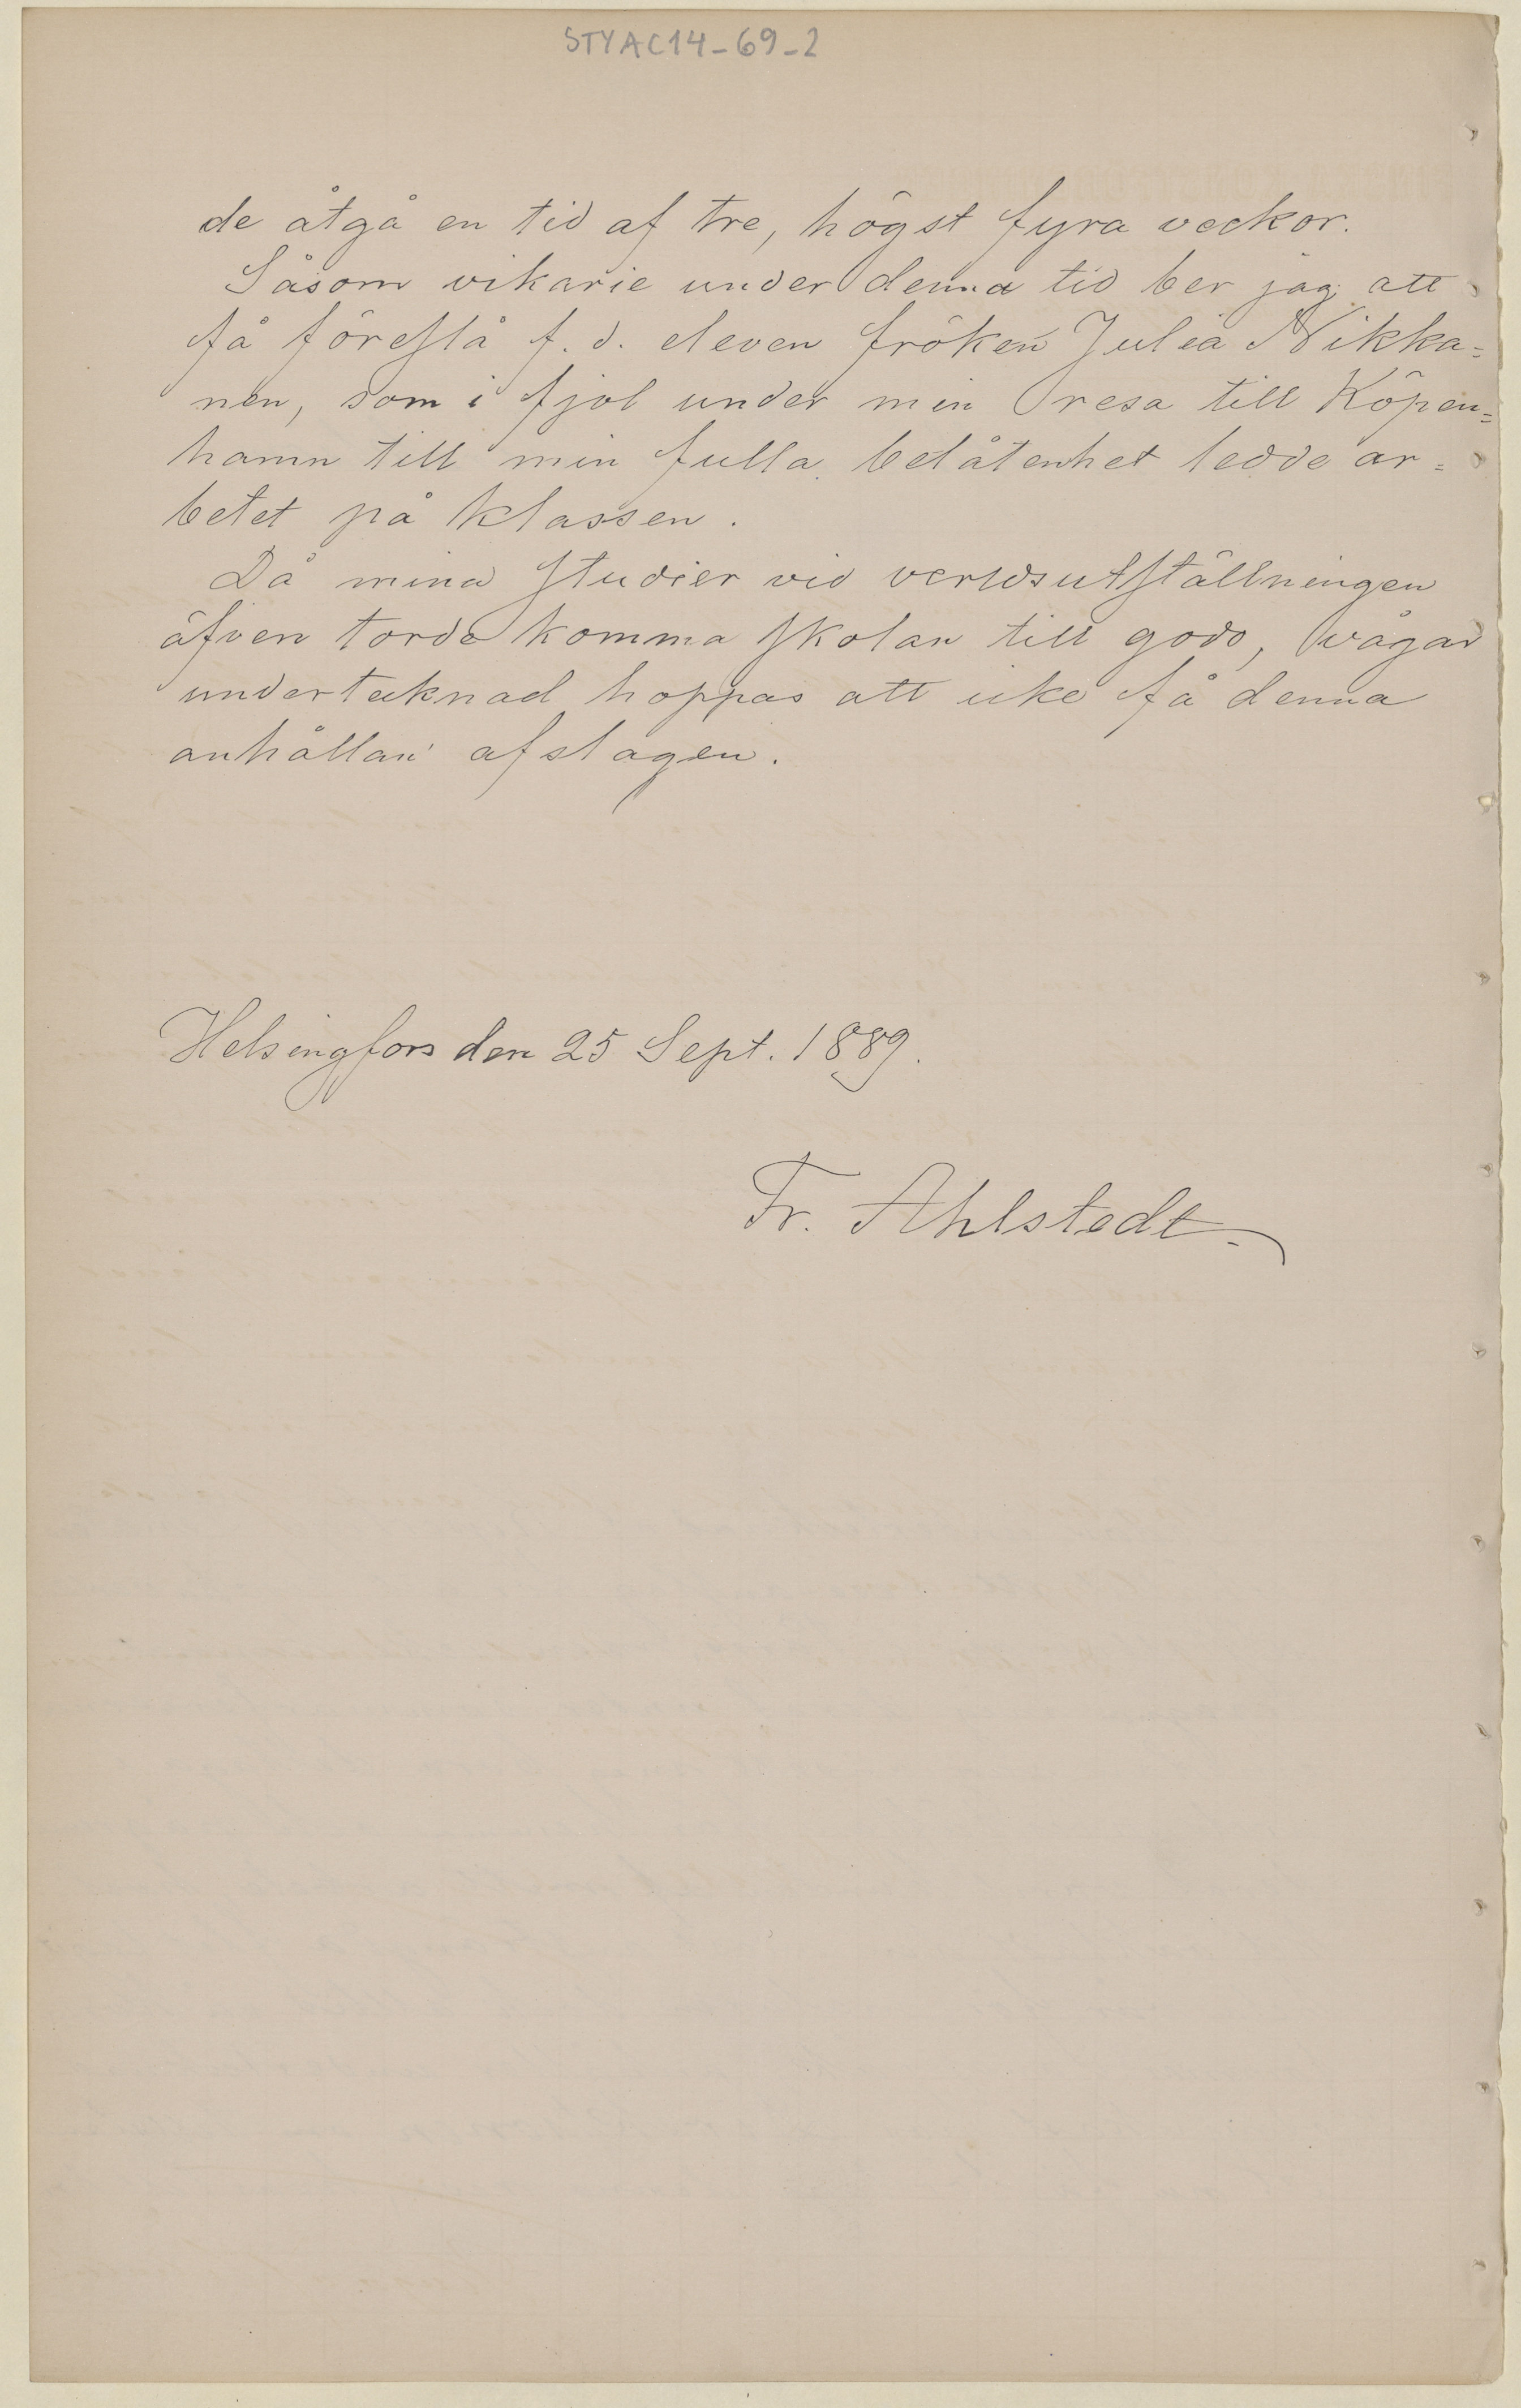 STYAC14-69-2
de åtgå en tid af tre, högst fyra veckor.
Såsom vikarie under denna tid ber jag att
få föreslå f. d. eleven fröken Julia Nikka=
nen, som i fjol under min resa till Köpen=
hamn till min fulla belåtenhet ledde ar=
betet på klassen.
Då mina studier vid verldsutställningen
äfven torde komma skolan till godo, vågar
undertecknad hoppas att icke få denna
anhållan afslagen.
Helsingfors den 25 Sept. 1889.
Fr. Ahlstedt.